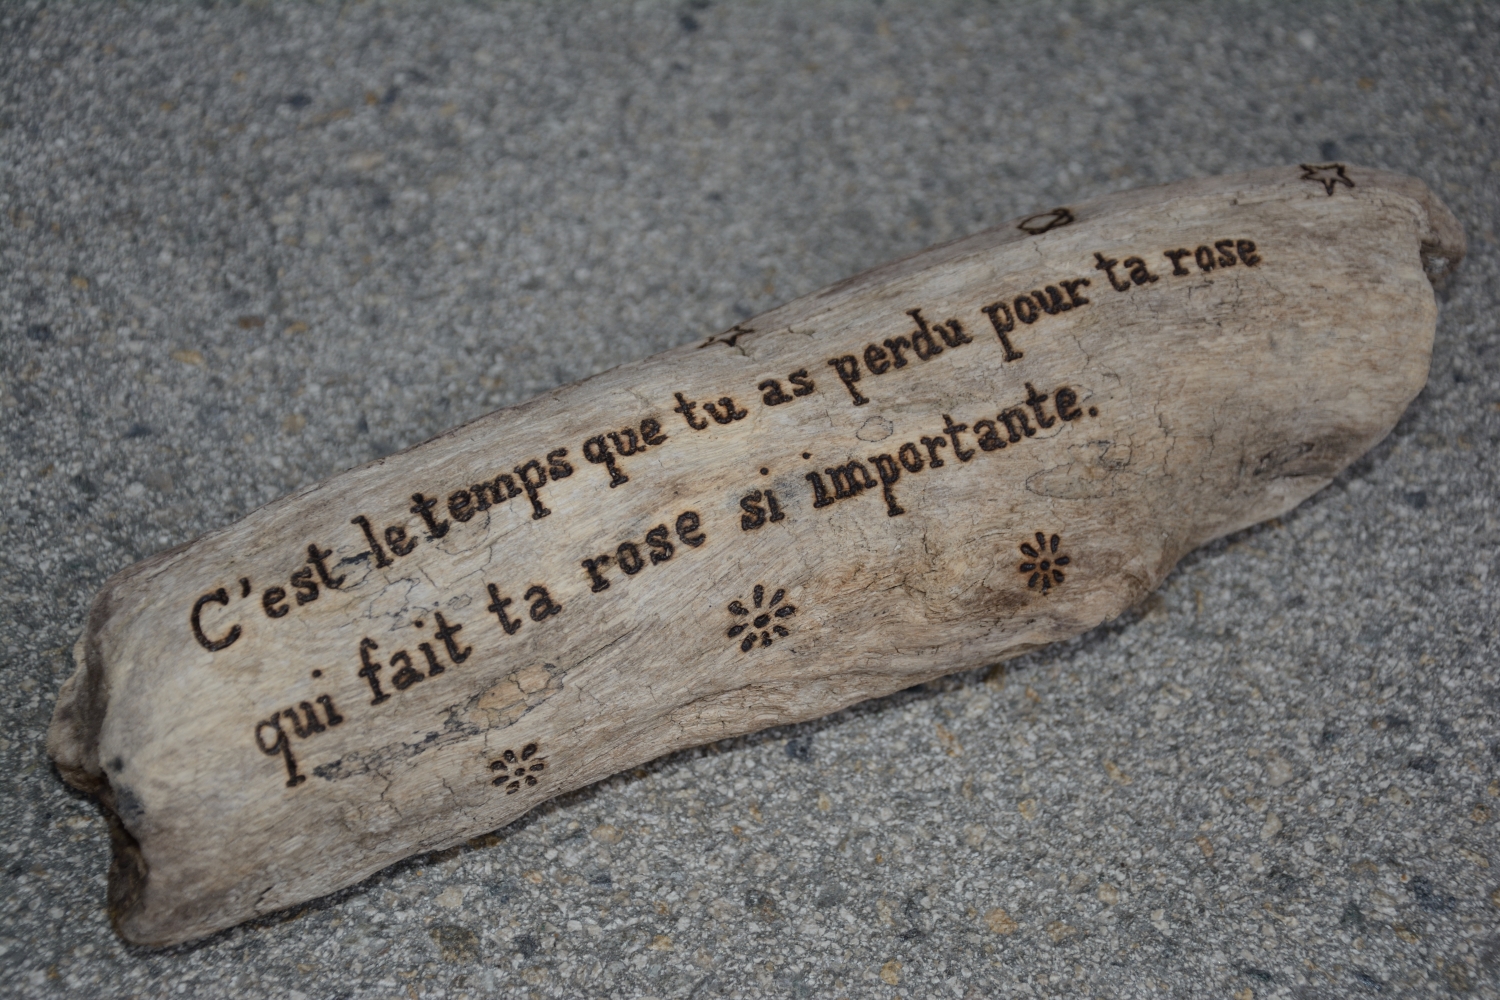 C'est le temps que tu as perdu pour ta rose
qui fait ta rose si importante.